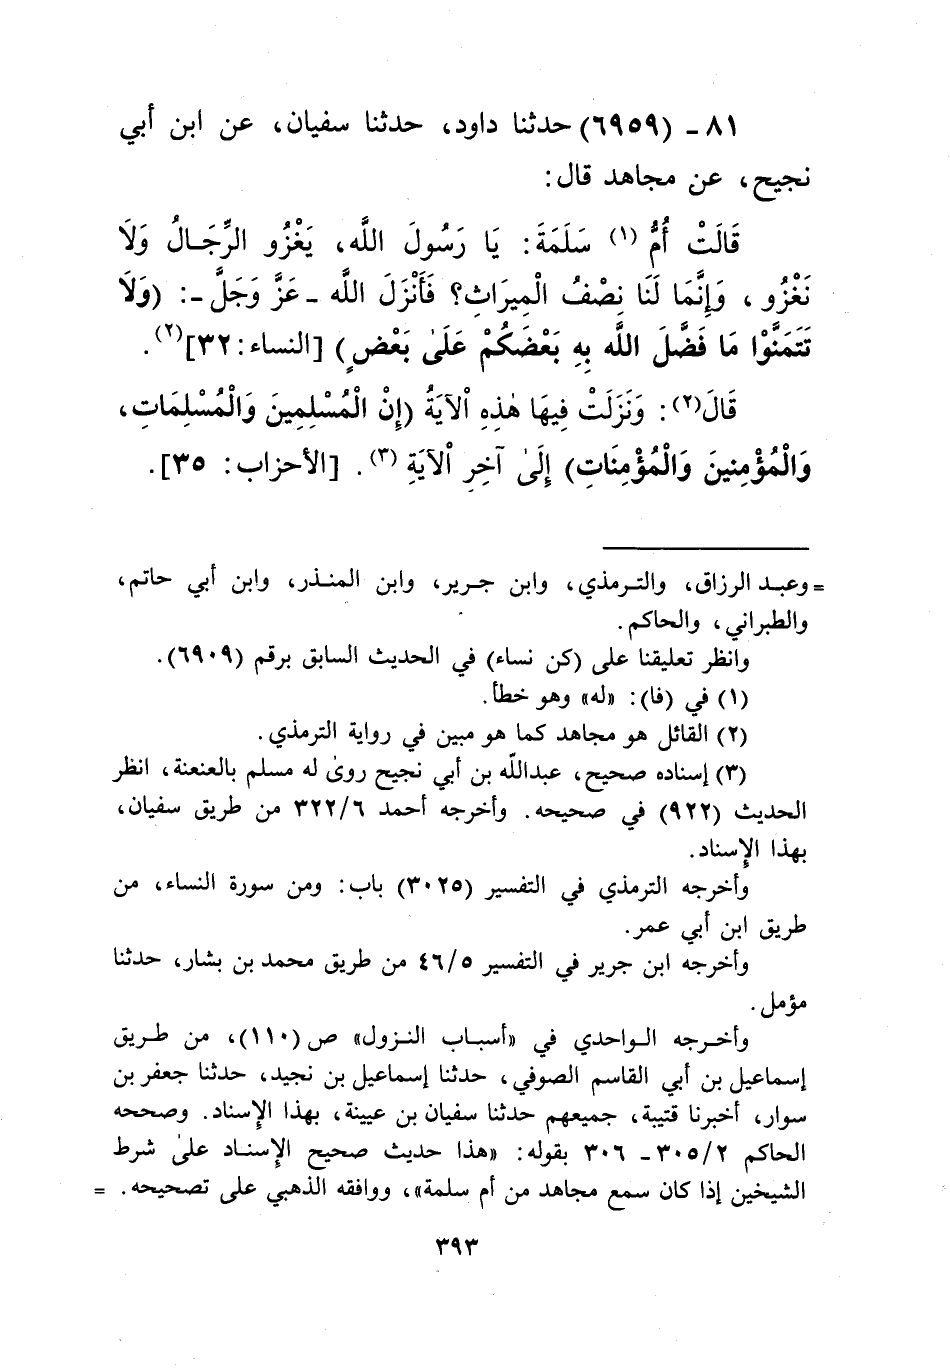 ٨١ - (٦٩٥٩) حدثنا داود، حدثنا سفيان، عن ابن أبي
نجيح، عن مجاهد قال:
قَالَتْ أُمُّ (١) سَلَمَةَ: يَا رَسُولَ اللَّه، يَغْزُو الرِّجَالُ وَلَا
نَغْزُو، وَإِنَّمَا لَنَا نِصْفُ الْمِيرَاثِ؟ فَأَنْزَلَ اللَّه - عَزَّ وَجَلَّ -: (وَلَا
تَتَمَنَّوْا مَا فَضَّلَ اللَّه بِهِ بَعْضَكُمْ عَلَىٰ بَعْضٍ) [النساء: ٣٢](٢).
قَالَ(٢): وَنَزَلَتْ فِيهَا هٰذِهِ اْلآيَةُ (إِنْ الْمُسْلِمِينَ وَالْمُسْلِمَاتِ،
وَالْمُؤْمِنينَ وَالْمُؤْمِنَاتِ) إِلَىٰ آخِرِ اْلآيَةِ (٣). [الأحزاب: ٣٥].
= وعبد الرزاق، والترمذي، وابن جرير، وابن المنذر، وابن أبي حاتم،
والطبراني، والحاكم.
وانظر تعليقنا على (كن نساء) في الحديث السابق برقم (٦٩٠٩).
(١) في (فا): «له» وهو خطأ.
(٢) القائل هو مجاهد كما هو مبين في رواية الترمذي.
(٣) إسناده صحيح، عبداللّه بن أبي نجيح روىٰ له مسلم بالعنعنة، انظر
الحديث (٩٢٢) في صحيحه. وأخرجه أحمد ٣٢٢/٦ من طريق سفيان،
بهذا الإسناد.
وأخرجه الترمذي في التفسير (٣٠٢٥) باب: ومن سورة النساء، من
طريق ابن أبي عمر.
وأخرجه ابن جرير في التفسير ٤٦/٥ من طريق محمد بن بشار، حدثنا
مؤمل.
وأخرجه الواحدي في «أسباب النزول» ص (١١٠)، من طريق
إسماعيل بن أبي القاسم الصوفي، حدثنا إسماعيل بن نجيد، حدثنا جعفر بن
سوار، أخبرنا قتيبة، جميعهم حدثنا سفيان بن عيينة، بهذا الإسناد. وصححه
الحاكم ٣٠٥/٢ - ٣٠٦ بقوله: «هذا حديث صحيح الإسناد علىٰ شرط
الشيخين إذا كان سمع مجاهد من أم سلمة»، ووافقه الذهبي على تصحيحه. =
٣٩٣